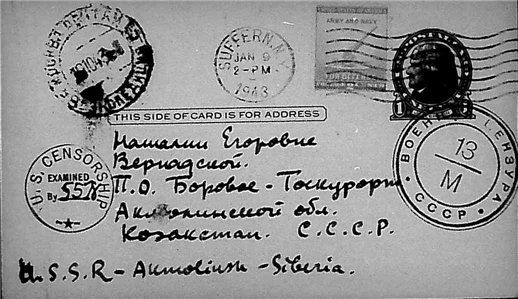 SUFFERN, N.Y.
JAN 9
2-PM
1943
ARMY AND NAVY
FOR DEFENSE
1
THIS SIDE OF CARD IS FOR ADDRESS
U.S. CENSORSHIP
EXAMINED
By 5578
ВОЕННАЯ ЦЕНЗУРА
13
М
СССР
Наталии Егоровне
Вернадской.
П.О. Боровое-Тоскурорт
Акмолинской обл.
Козакстан. С.С.С.Р.
U.S.S.R - Akmolinsk - Siberia.